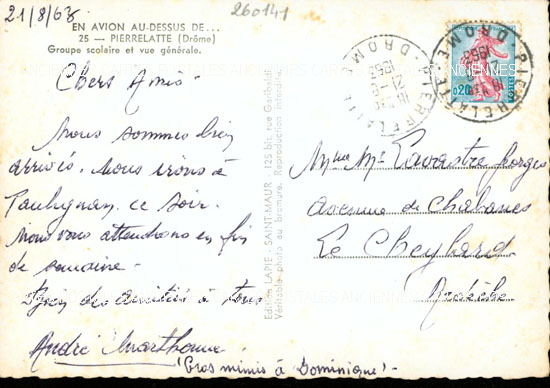 21/8/63
260141
EN AVION AU-DESSUS DE...
25 — PIERRELATTE (Drôme)
Groupe scolaire et vue générale.
Chers Amis
Nous sommes bien
arrivés. Nous irons à
Taulignan ce soir.
Nous vous attendrons en fin
de semaine.
Bien des amitiés à tous
André Marthoune
(Gros mimis à Dominique!
Edition LAPIE - SAINT-MAUR - 125 bis, rue Garibaldi
Véritable photo au bromure. Reproduction interdite.
PIERRELATTE
DROME
18 H
21-8
1963
PIERRELATTE
DROME
18 H
1963
0,20
Mme Mr Lavastre Georges
avenue de Chabanes
Le Cheylard
Ardèche
CARTES POSTALES ANCIENNES